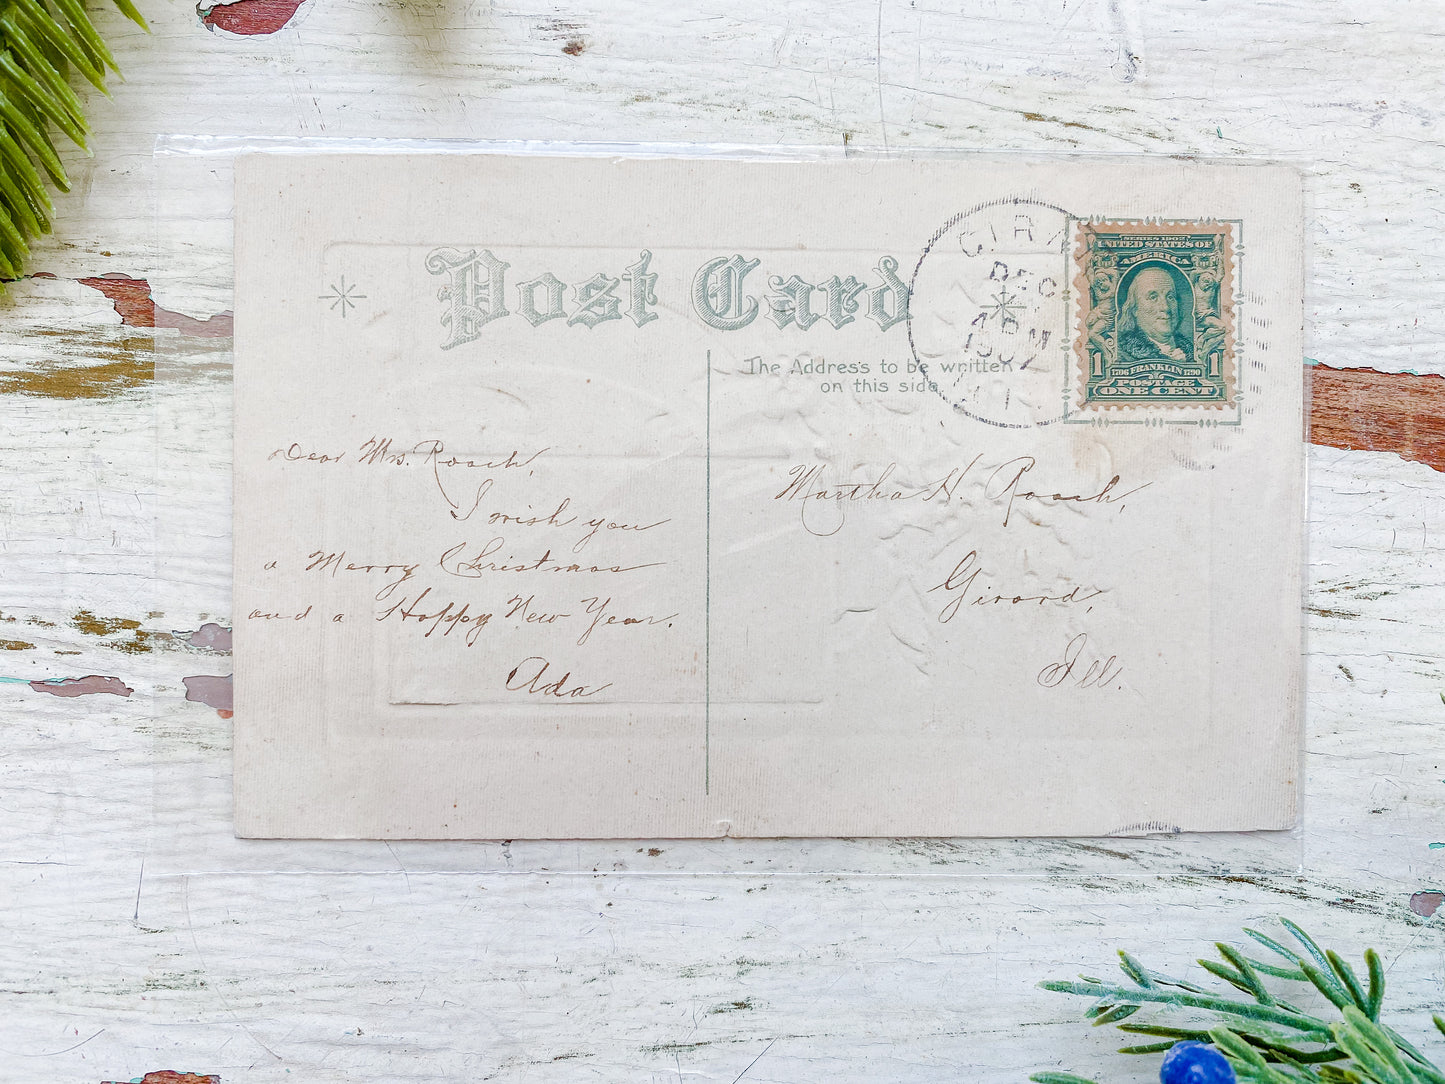 Post Card
The Address to be written
on this side.
GIRA
DEC
4 PM
1907
ILL
SERIES 1902
UNITED STATES OF
AMERICA
1 1
1706 FRANKLIN 1790
POSTAGE
ONE CENT
Dear Mrs. Roach,
I wish you
a Merry Christmas
and a Happy New Year.
Ada
Martha H. Roach,
Girard,
Ill.